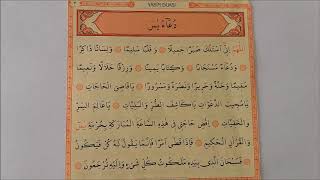 YASİN DUASI
دُعَاءُ يٰسٓ
اَللّٰهُمَّ اِنِّي اَسْئَلُكَ صَبْرًا جَمِيلًا ۞ وَ قَلْبًا سَلِيمًا ۞ وَلِسَانًا ذَاكِرًا
وَدُعَاءً مُسْتَجَابًا ۞ وَكِتَابًا يَمِينًا ۞ وَرِزْقًا حَلَالًا ۞ وَنَعِيمًا
مُقِيمًا وَجَنَّةً وَحَرِيرًا وَنَضْرَةً وَسُرُورًا ۞ يَاقَاضِيَ الْحَاجَاتِ
يَامُجِيبَ الدَّعَوَاتِ يَاكَاشِفَ الضُّرِّ وَالْبَلِيَّاتِ ۞ يَاعَالِمَ السِّرِّ
وَالْخَفِيَّاتِ ۞ اِقْضِ حَاجَتِي فِي هٰذِهِ السَّاعَةِ الْمُبَارَكَةِ بِحُرْمَةِ يٰسٓ
وَالْقُرْاٰنِ الْحَكِيمِ ۞ فَاِذَا قَضٰى اَمْرًا فَاِنَّمَا يَقُولُ لَهُ كُنْ فَيَكُونُ
فَسُبْحَانَ الَّذِي بِيَدِهِ مَلَكُوتُ كُلِّ شَيْءٍ وَاِلَيْهِ تُرْجَعُونَ